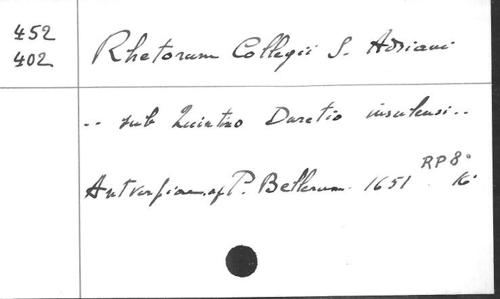 452
402
Rhetorum Collegii S. Adriani
.. sub Quintino Duretio insulensi ..
Antverpiae, ap P. Bellerum. 1651 RP 8°
16°